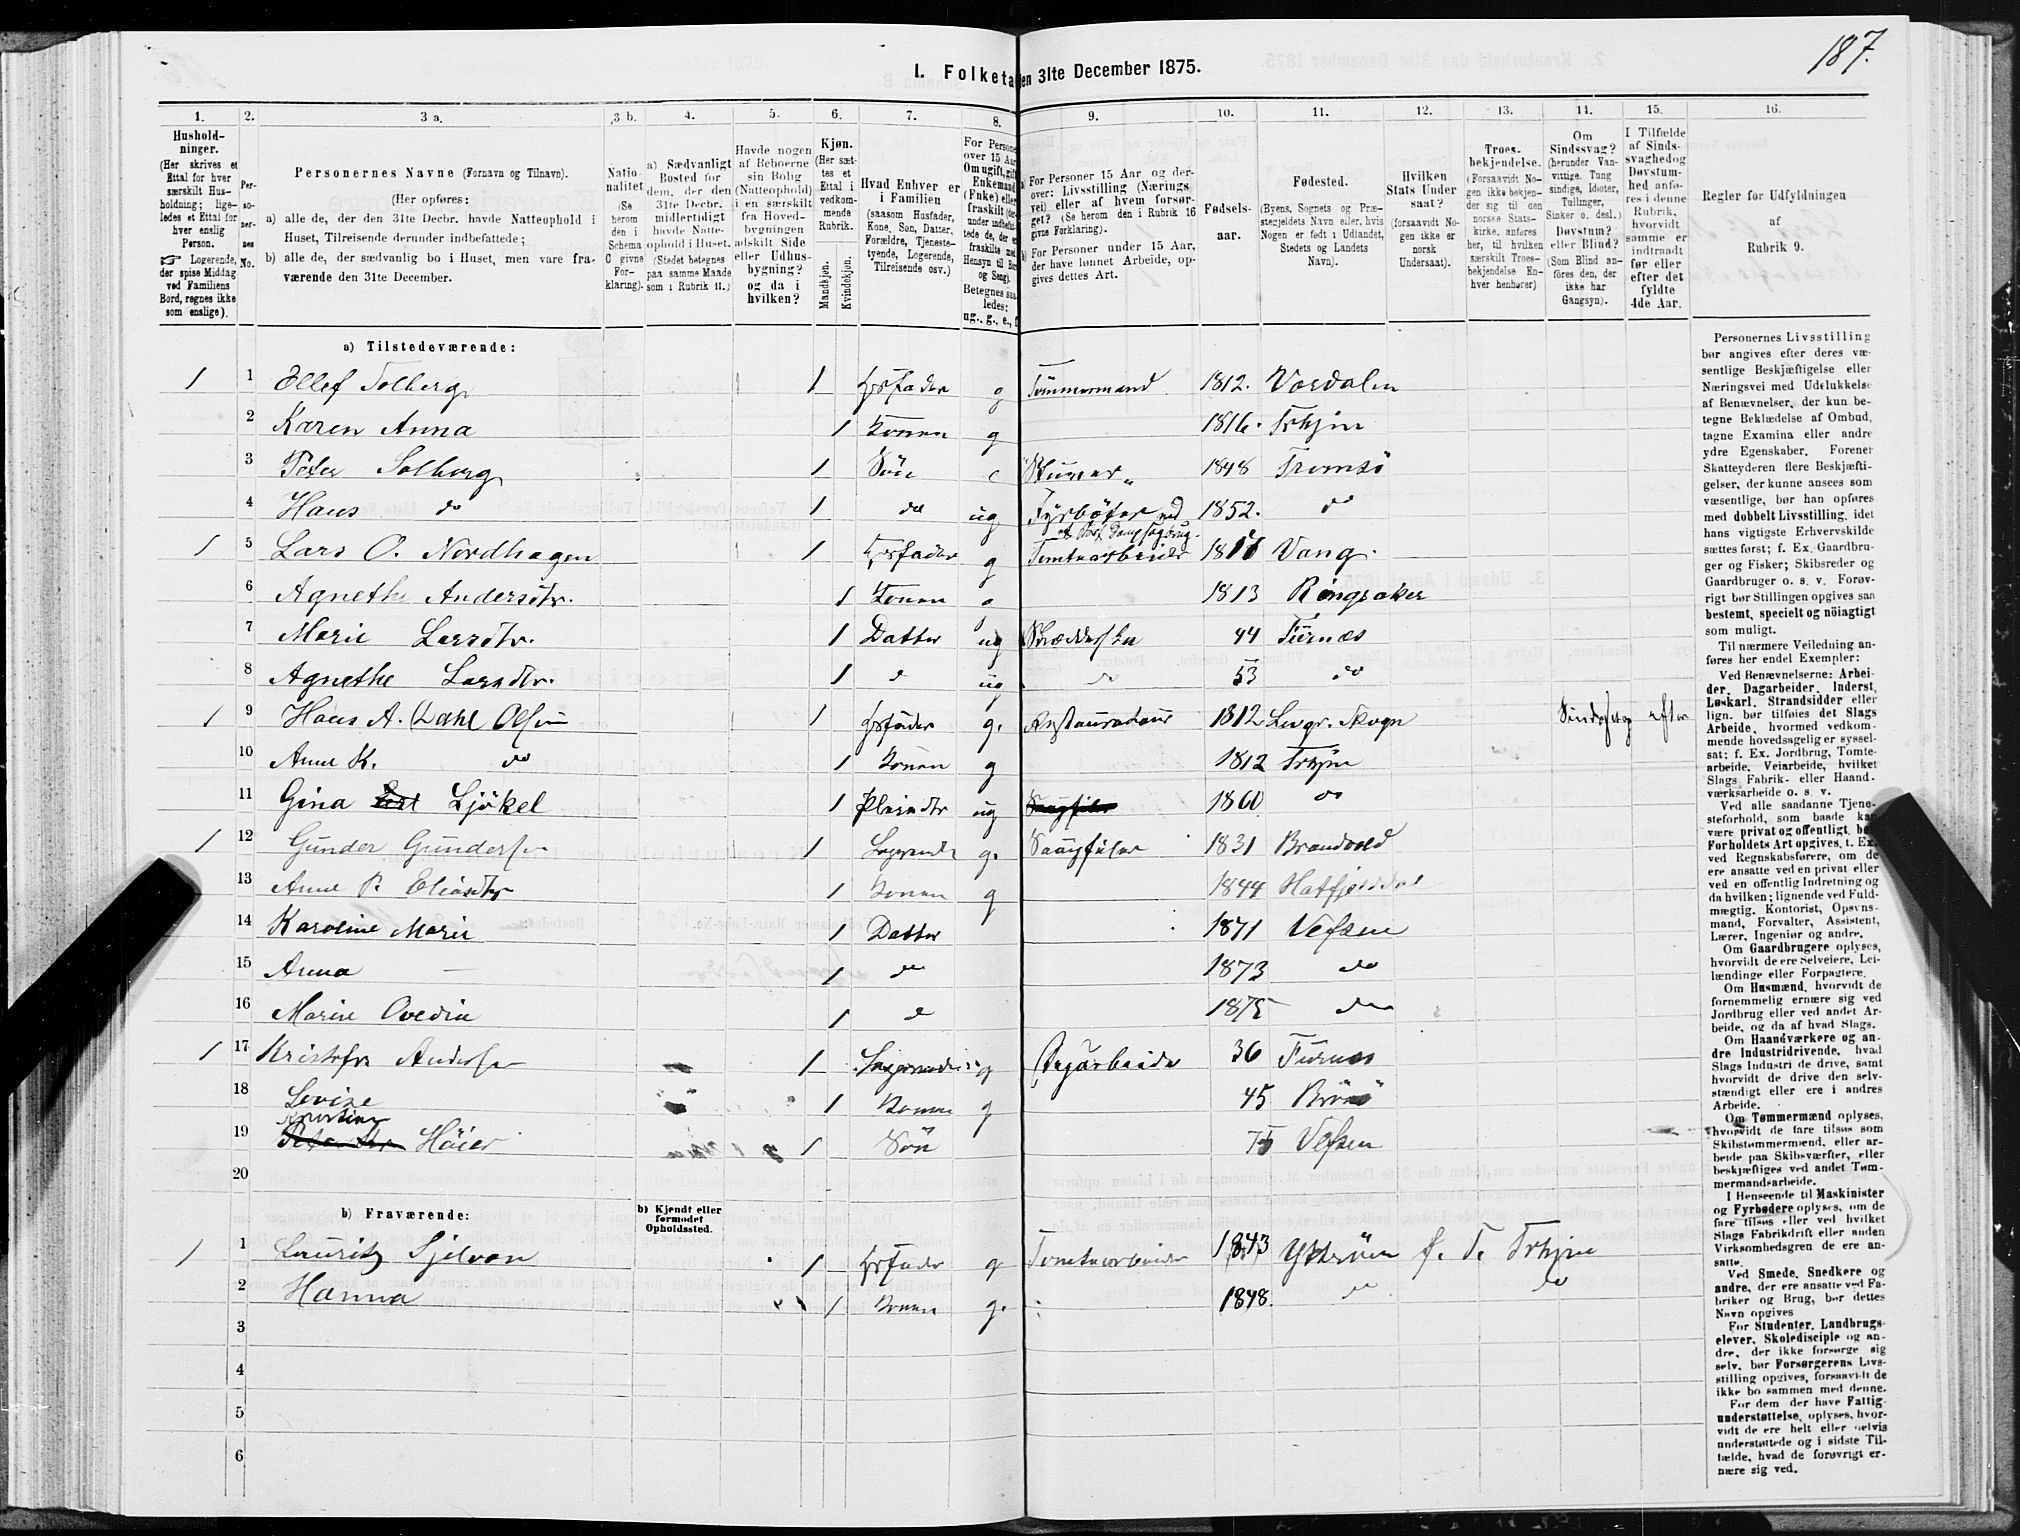 187.
I. Folketa en 31te December 1875.
1. 2. 3 a. 3 b. 4. 5. 6. 7. 8. 9. 10. 11. 12. 13. 14. 15. 16.
Hushold-
ninger.
(Her skrives et
Ettal for hver
særskilt Hus-
holdning; lige-
ledes et Ettal for
hver enslig
Person.
Logerende,
der spise Middag
ved Familiens
Bord, regnes ikke
som enslige).
Per-
so-
ner-
nes
No.
Personernes Navne (Fornavn og Tilnavn).
(Her opføres:
a) alle de, der den 31te Decbr. havde Natteophold i
Huset, Tilreisende derunder indbefattede;
b) alle de, der sædvanlig bo i Huset, men vare fra-
værende den 31te December.
Natio-
nalitet
(Se
herom
den i
Schema
C givne
For-
klaring).
a) Sædvanligt
Bosted for
dem, der den
31te Decbr.
midlertidigt
havde Natte-
ophold i Huset.
(Stedet betegnes
paa samme Maade
som i Rubrik 11.)
Havde nogen
af Beboerne
sin Bolig
(Natteophold)
i en særskilt
fra Hoved-
bygningen
adskilt Side
eller Udhus-
bygning?
og da i
hvilken?
Kjøn.
(Her sæt-
tes et
Ettal i
vedkom-
mende
Rubrik.
Mandkjøn.
Kvindekjøn.
Hvad Enhver er
i Familien
(saasom Husfader,
Kone, Søn, Datter,
Forældre, Tjeneste-
tyende, Logerende,
Tilreisende osv.)
For Persone
over 15 Aar
Om ugift, gift
Enkemand
(Enke) elle
fraskilt
Betegnes saa
ledes:
ug., g., e., f
a) For Personer 15 Aar og der-
over: Livsstilling (Nærings
vei) eller af hvem forsør-
get? (Se herom den i Rubrik 16
givne Forklaring).
b) For Personer under 15 Aar,
der have lønnet Arbeide, op-
gives dettes Art.
Fødsels-
aar.
Fødested.
(Byens, Sognets og Præ-
stegjeldets Navn eller, hvis
Nogen er født i Udlandet,
Stedets og Landets
Navn).
Hvilken
Stats Under
saat?
(forsaavidt No-
gen ikke er
norsk
Undersaat).
Troes-
bekjendelse.
(Forsaavidt No-
gen ikke bekjen-
der sig til den
norske Stats-
kirke, anføres
her, til hvilken
særskilt Troes-
bekjendelse En-
hver henhører)
Om
Sindssvag?
(herunder Van-
vittige, Tung
sindige, Idioter,
Tullinger,
Sinker o. desl.)
Døvstum?
eller Blind?
(Som Blind an-
føres den, der
ikke har
Gangsyn).
I Tilfælde
af Sinds-
svaghed og
Døvstum-
hed anfø-
res i denne
Rubrik,
hvorvidt
samme er
indtraadt
før eller
efter det
fyldte
4de Aar.
Regler for Udfyldningen
af
Rubrik 9.
a) Tilstedeværende:
1 1 Ellef Solberg 1 Husfader g Tømmermand 1812. Værdalen
2 Karen Anna 1 Konen g 1816. Trhjm
3 Peter Solberg 1 Søn 1848 Tromsø
4 Hans do 1 do ug Fyrbøter ved 1852. do
1 5 Lars O. Nordhagen 1 Husfader g Tomtearbeider Vang.
6 Agnethe Andersdtr. 1 Konen g 1813 Ringsaker
7 Marie Larsdtr. 1 Datter ug 44 Furnæs
8 Agnethe Larsdtr. 1 d ug do 53 do
1 9 Hans A. Dahl Olsen 1 Husfader g. Restauratør 1812 Levgr. Skogn Sindssvag efter
10 Anne K. do 1 Konen g 1812 Trhjm
11 Gina Ljøkel 1 Pleiedtr ug 1860 do
1 12 Gunder Gundersen 1 Logerende g. Saugfiler 1831 Brandvold
13 Anne P. Eliasdtr 1 Konen g 1844 Hatfjeldal
14 Karoline Marie 1 Datter 1871 Vefsen
15 Anna — 1 do 1873 do
16 Marie Ovedia 1 d 1875 do
1 17 Kristofer Andersen 1 Logerende g Sagarbeide 36 Furnes
18 Lovise 1 Konen g 45 Brønø
19 Høier 1 Søn 75 Vefsen
20
b) Fraværende:
b) Kjendt eller
formodet
Opholdssted.
1 1 Lauritz Sjelvan 1 Husfader g Tomtearbeider 1843 Ytterøen f. T. Trhjm
2 Hanna 1 Konen g. 1848. do do
3
4
5
6
Personernes Livsstilling
bør angives efter deres væ-
sentlige Beskjæftigelse eller
Næringsvei med Udelukkelse
af Benævnelser, der kun be-
tegne Beklædelse af Ombud,
tagne Examina eller andre
ydre Egenskaber. Forener
Skatteyderen flere Beskjæfti-
gelser, der kunne ansees som
væsentlige, bør han opføres
med dobbelt Livsstilling, idet
hans vigtigste Erhvervskilde
sættes først; f. Ex. Gaardbru-
ger og Fisker; Skibsreder og
Gaardbruger o. s. v. Forøv-
rigt bør Stillingen opgives saa
bestemt, specielt og nöiagtigt
som muligt.
Til nærmere Veiledning an-
føres her endel Exempler:
Ved Benævnelserne: Arbei-
der, Dagarbeider, Inderst,
Løskarl, Strandsidder eller
lign. bør tilføies det Slags
Arbeide, hvormed vedkom-
mende hovedsagelig er syssel-
sat; f. Ex. Jordbrug, Tomte-
arbeide, Veiarbeide, hvilket
Slags Fabrik- eller Haand-
værksarbeide o. s. v.
Ved alle saadanne Tjene-
steforhold, som baade kan
være privat og offentligt, bør
Forholdets Art opgives, t. Ex.
ved Regnskabsførere, om de
ere ansatte ved en privat eller
ved en offentlig Indretning og
da hvilken; lignende ved Fuld-
mægtig, Kontorist, Opsyns-
mand, Forvalter, Assistent,
Lærer, Ingeniør og andre.
Om Gaardbrugere oplyses,
hvorvidt de ere Selveiere, Lei-
lændinge eller Forpagtere.
Om Husmænd, hvorvidt de
fornemmelig ernære sig ved
Jordbrug eller ved andet Ar-
beide, og da af hvad Slags.
Om Haandværkere og an-
dre Industridrivende, hvad
Slags Industri de drive, samt
hvorvidt de drive den selv-
stændigt eller ere i andres
Arbeide.
Om Tømmermænd oplyses,
hvorvidt de fare tilsøs som
Skibstømmermænd, eller ar-
beide paa Skibsværfter, eller
beskjæftiges ved andet Tøm-
mermandsarbeide.
I Henseende til Maskinister
og Fyrbødere oplyses, om de
fare tilsøs eller ved hvilket
Slags Fabrikdrift eller anden
Virksomhedsgren de ere an-
satte.
Ved Smede, Snedkere og
andre, der ere ansatte ved Fa-
briker og Brug, bør dettes
Navn opgives
For Studenter, Landbrugs-
elever, Skoledisciple og an-
dre, der ikke forsørge sig
selv, bør Forsørgerens Livs-
stilling opgives, forsaavidt de
ikke bo sammen med denne.
For dem der have Fattig-
understøttelse, oplyses, hvor-
vidt de ere helt eller delvis
understøttede og i sidste Til-
fælde, hvad de forøvrigt er-
nære sig ved.